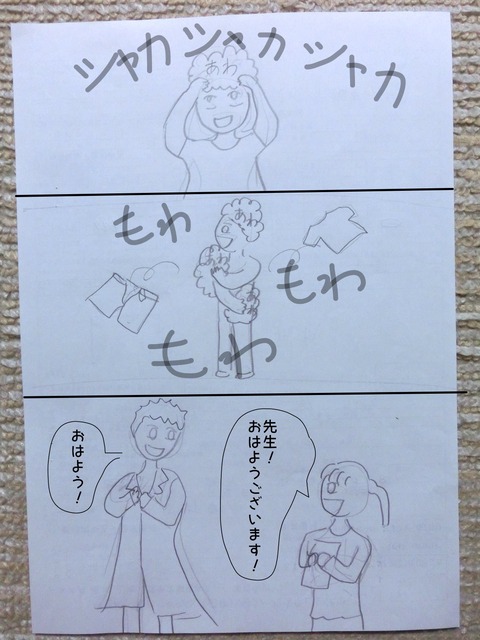 シャカ シャカ シャカ
あわ
もわ
あわ
あわ
もわ
もわ
先生!
おはようございます!
おはよう!